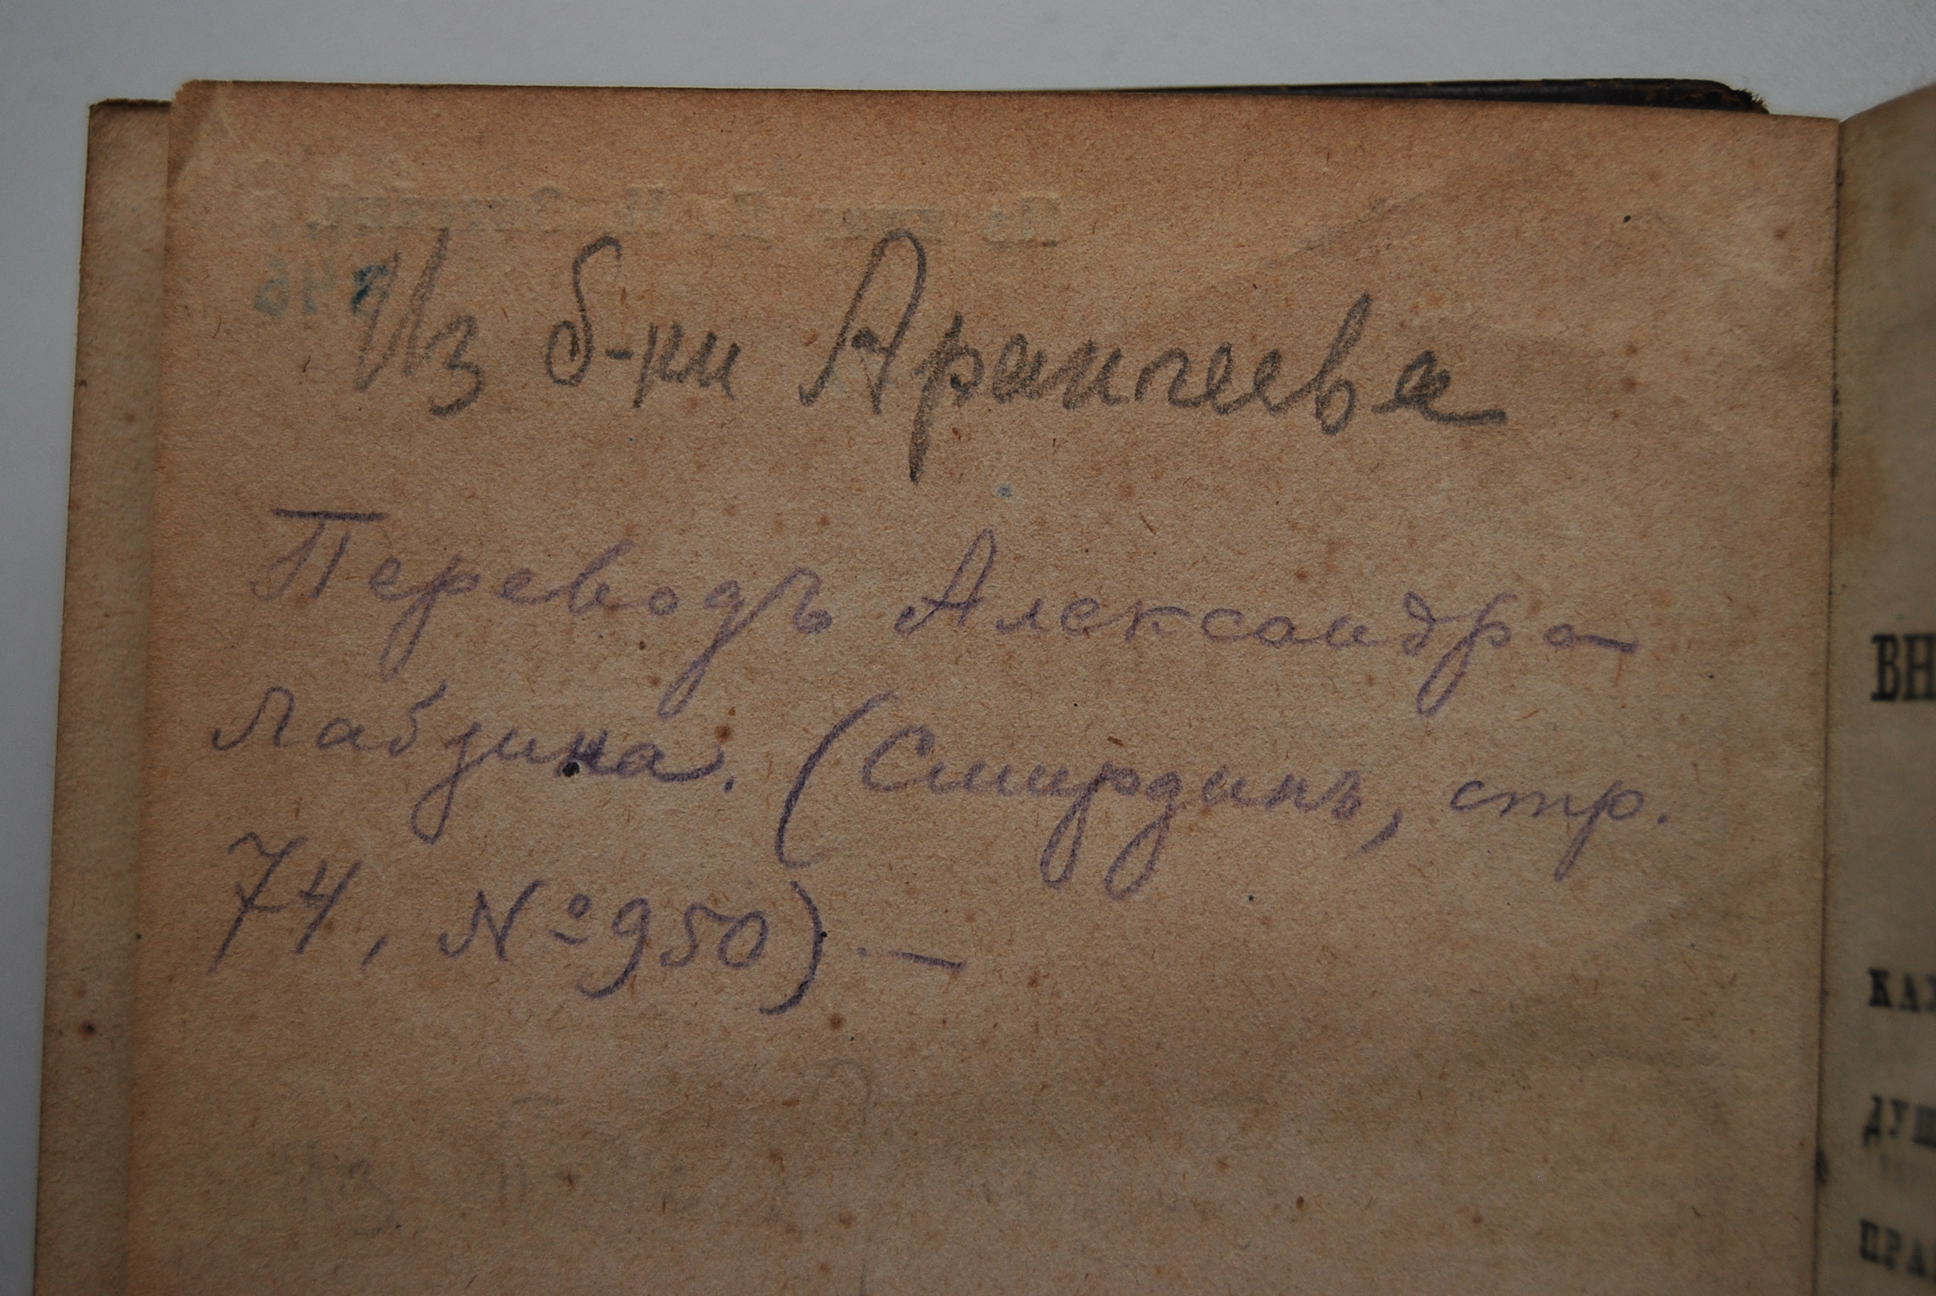 Из б-ки Аракчеева
Переводъ Александра
Лабзина. (Смирдинъ, стр.
74, № 950) —
ВН
ДУШ
ПРА